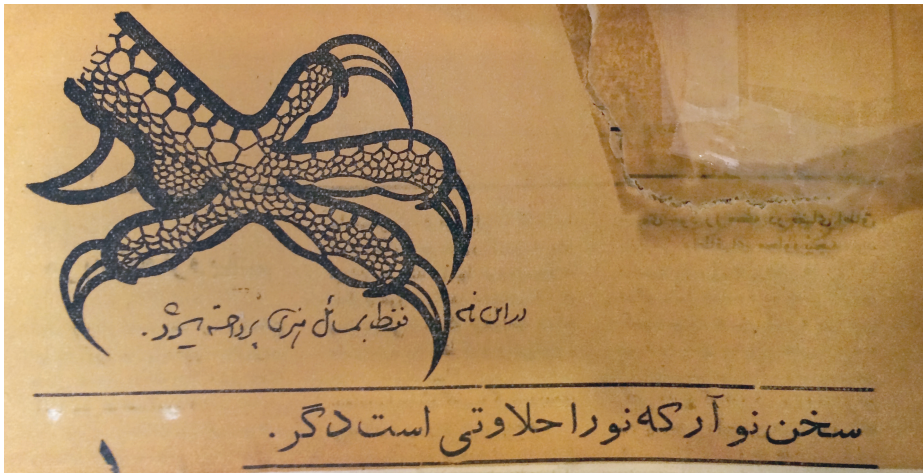 در این نامه فقط بمسائل هنری پرداخته میشود.
سخن نو آر که نو را حلاوتی است دگر.